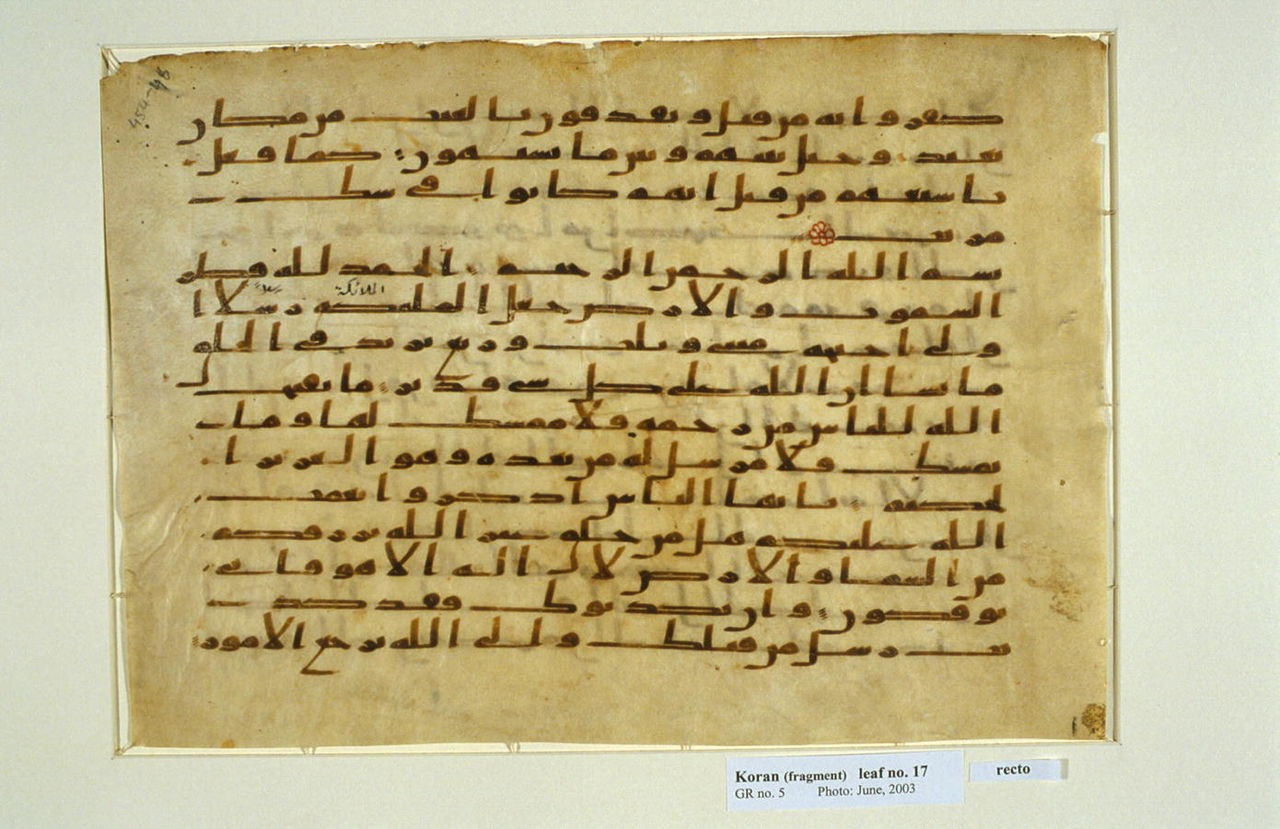 454-46
كفروا به من قبل ويقذفون بالغيب من مكان
بعيد وحيل بينهم وبين ما يشتهون كما فعل
باشيعهم من قبل انهم كانوا في شك
مريب
بسم الله الرحمن الرحيم الحمد لله فطر
الملائكة
السموت والارض جعل الملئكة رسلا ا
ولي اجنحة مثنى وثلث وربع يزيد في الخلق
ما يشا ان الله على كل شي قدير ما يفتح
الله للناس من رحمة فلا ممسك لها وما
يمسك فلا مرسل له من بعده وهو العزيز ا
لحكيم يايها الناس اذكروا نعمت
الله عليكم هل من خلق غير الله يرزقكم
من السما والارض لا اله الا هو فانى
توفكون وان يكذبوك فقد كذ
بت رسل من قبلك والى الله ترجع الامور
Koran (fragment) leaf no. 17
recto
GR no. 5 Photo: June, 2003